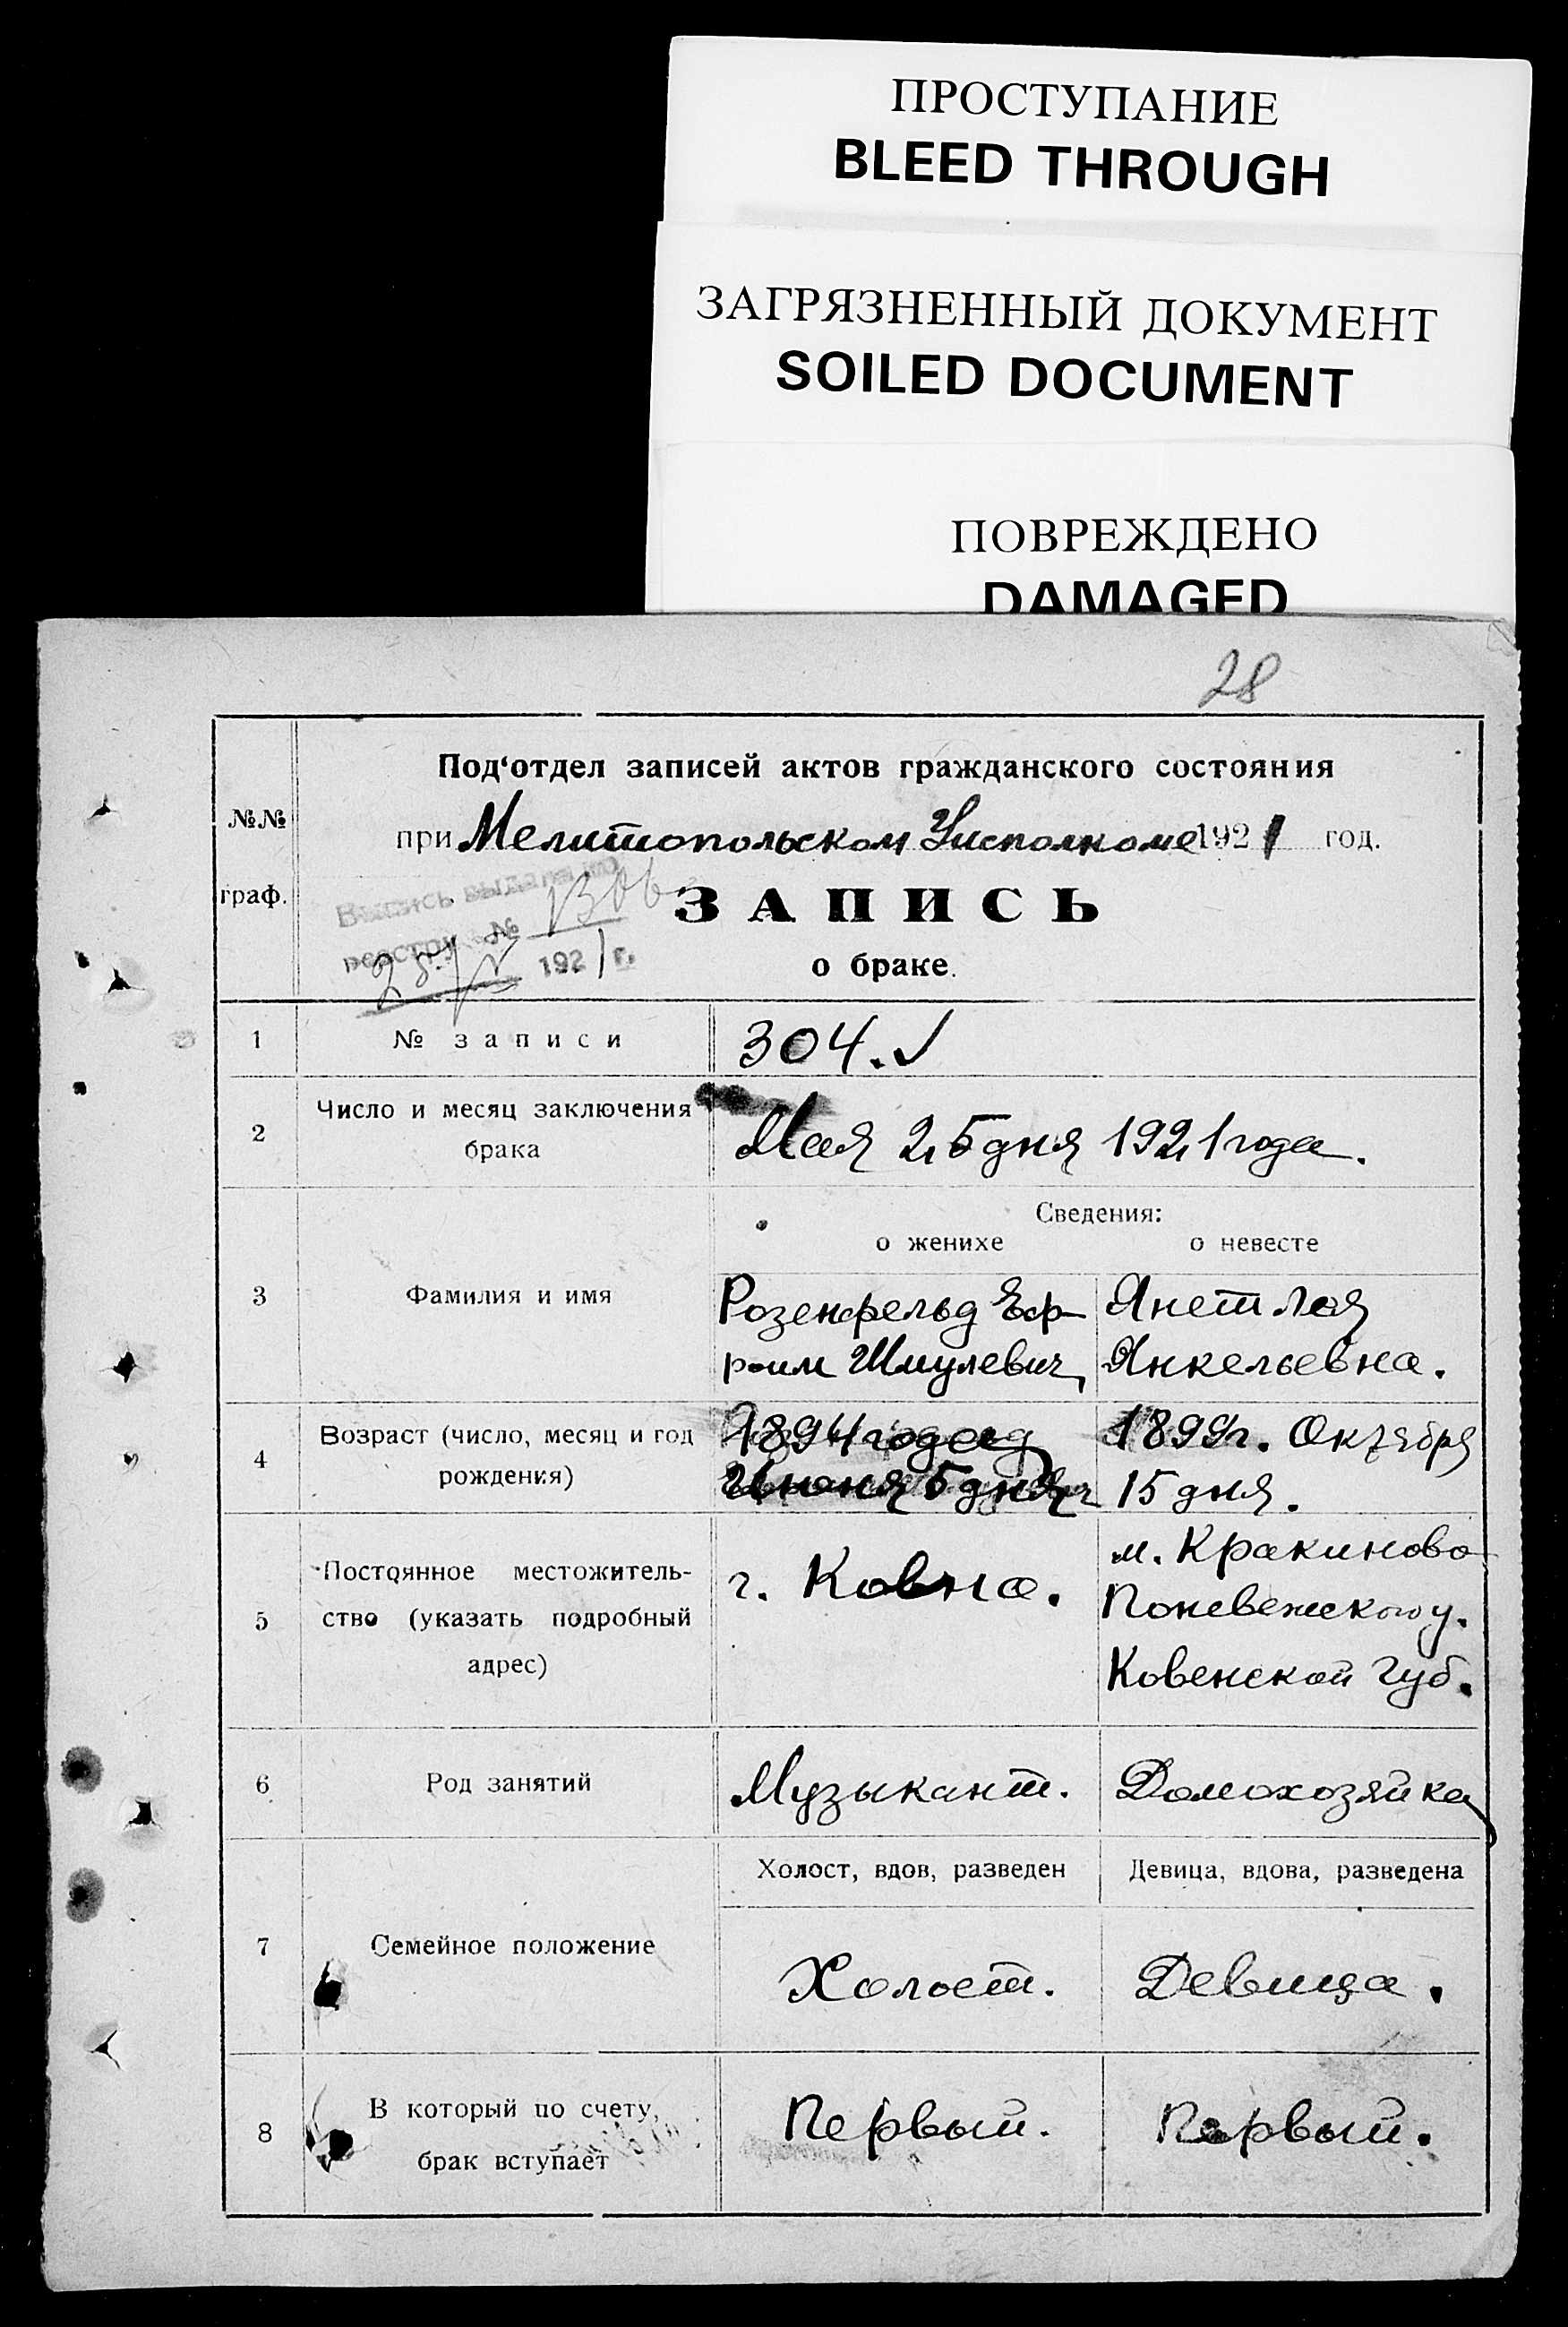 ПРОСТУПАНИЕ
BLEED THROUGH
ЗАГРЯЗНЕННЫЙ ДОКУМЕНТ
SOILED DOCUMENT
ПОВРЕЖДЕНО
DAMAGED
28
№№
граф.
Под‘отдел записей актов гражданского состояния
при Мелитопольском Уисполкоме 1921 год.
Выпись выдана по
реестру №
1921 г.
ЗАПИСЬ
о браке.
1 № записи 304.
2 Число и месяц заключения
брака
Мая 25 дня 1921 года.
Сведения:
о женихе о невесте
3 Фамилия и имя
Розенфельд Еф-
роим Шмулевич
Янет Лея
Янкельевна.
4 Возраст (число, месяц и год
рождения)
1894 года
Июня 5 дня
1899 г. Октября
15 дня.
5 Постоянное местожитель-
ство (указать подробный
адрес)
г. Ковна.
м. Кракиново
Поневежского у.
Ковенской губ.
6 Род занятий Музыкант. Домохозяйка
7 Семейное положение
Холост, вдов, разведен Девица, вдова, разведена
Холост. Девица.
8 В который по счету,
брак вступает
Первый. Первый.